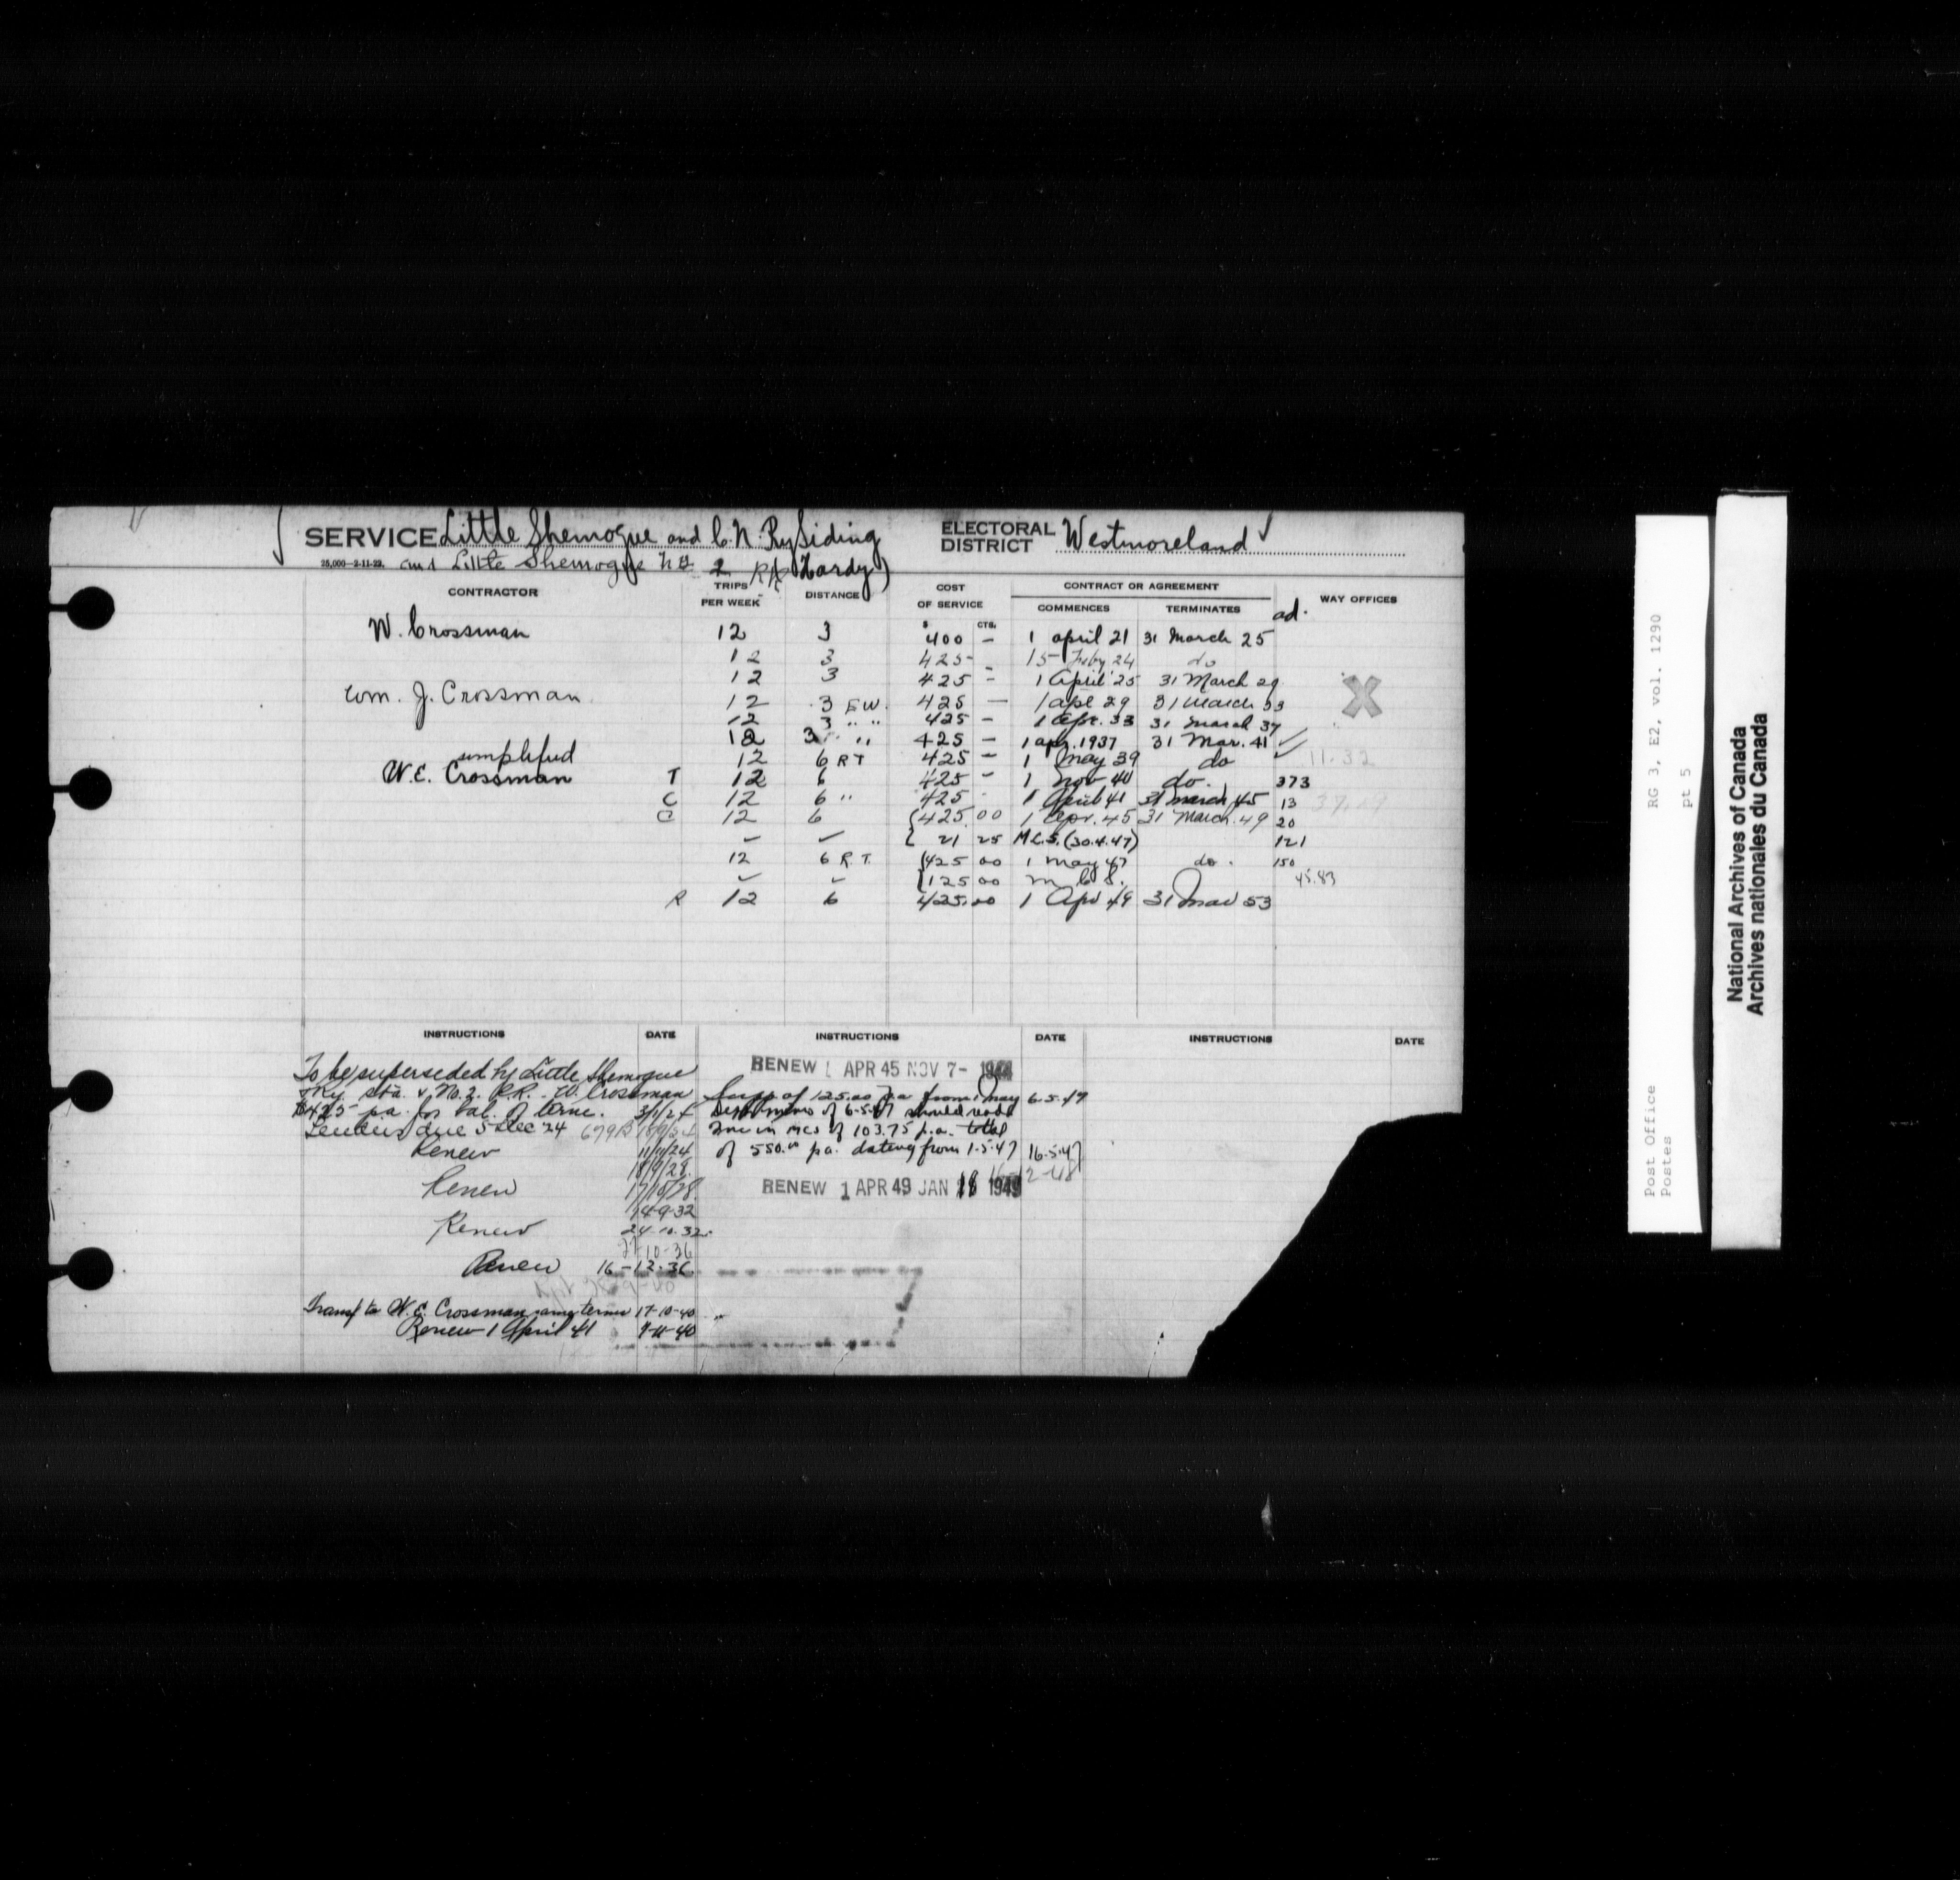 SERVICE Little Shemogue and C.N. Ry Siding ELECTORAL DISTRICT Westmoreland
25,000-2-11-22. and Little Shemogue No 2 RR Hardy)
CONTRACTOR TRIPS PER WEEK DISTANCE COST OF SERVICE CONTRACT OR AGREEMENT COMMENCES TERMINATES ad. WAY OFFICES
$ CTS.
W. Crossman 12 3 400 — 1 april 21 31 March 25
12 3 425 - 15 Feby 24 do
12 3 425 - 1 April 25 31 March 29
Wm. J. Crossman 12 3 E.W. 425 — 1 apl 29 31 March 33
12 3 " " 425 — 1 Apr. 33 31 March 37
12 3 " " 425 — 1 apr. 1937 31 Mar. 41
simplified 12 6 RT 425 — 1 May 39 do 11.32
W.E. Crossman T 12 6 425 - 1 Nov 40 do. 373
C 12 6 " 425 1 April 41 31 March 45 13
C 12 6 {425.00 1 Apr. 45 31 March 49 20
{ 21 25 M.C.S. (30.4.47) 121
12 6 R.T. {425 00 1 May 47 do. 150
{125 00 m C S. 45.83
R 12 6 425.00 1 Apr 49 31 Mar 53
INSTRUCTIONS DATE INSTRUCTIONS DATE INSTRUCTIONS DATE
To be superseded by Little Shemogue
Ry. Sta. & No. 2. R.R. W. Crossman
$425 pa. for bal. of term. 3/1/24
Tenders due 5 Dec 24
Renew 11/11/24
18/9/28
Renew 17/10/28
14-9-32
Renew 24.10.32.
27-10-36
Renew 16-12-36
Transf to W.E. Crossman same terms 17-10-40
Renew 1 April 41 9-11-40
RENEW 1 APR 45 NOV 7- 1944
Supp of 125.00 pa from 1 May 6.5.47
Dept memo of 6-5-47 should read
Inc in MCS of 103.75 p.a. total
of 550.00 pa. dating from 1.5.47 16.5.47
RENEW 1 APR 49 JAN 18 1949
RG 3, E2, vol. 1290
pt 5
Post Office
Postes
National Archives of Canada
Archives nationales du Canada